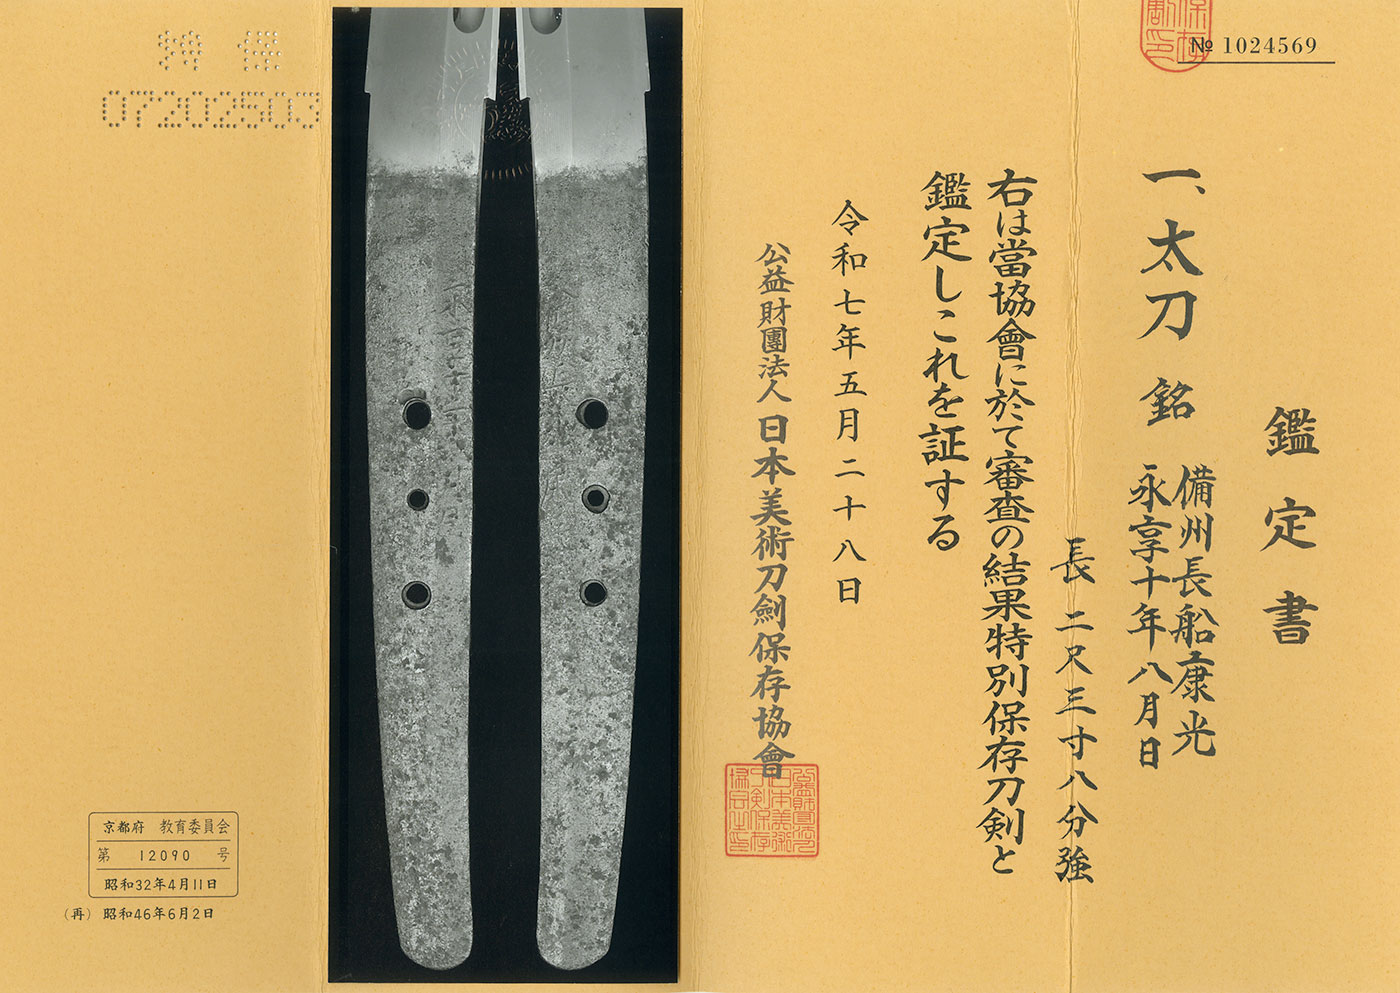 保存
割印
№ 1024569
鑑定書
一、太刀 銘 備州長船康光
永享十年八月日
長 二尺三寸八分強
右は當協會に於て審査の結果特別保存刀剣と
鑑定しこれを証する
令和七年五月二十八日
公益財團法人 日本美術刀劍保存協會
07202503
京都府 教育委員会
第 12090 号
昭和32年4月11日
(再) 昭和46年6月2日